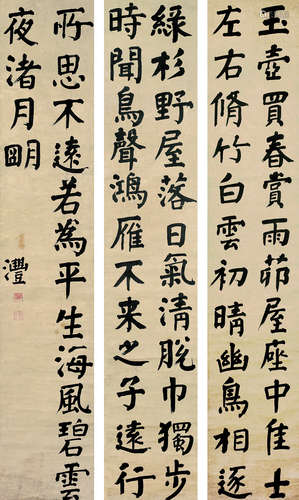 玉壺買春賞雨茆屋座中佳士
左右脩竹白雲初晴幽鳥相逐
綠杉野屋落日氣清脫巾獨步
時聞鳥聲鴻雁不來之子遠行
所思不遠若為平生海風碧雲
夜渚月明
灃